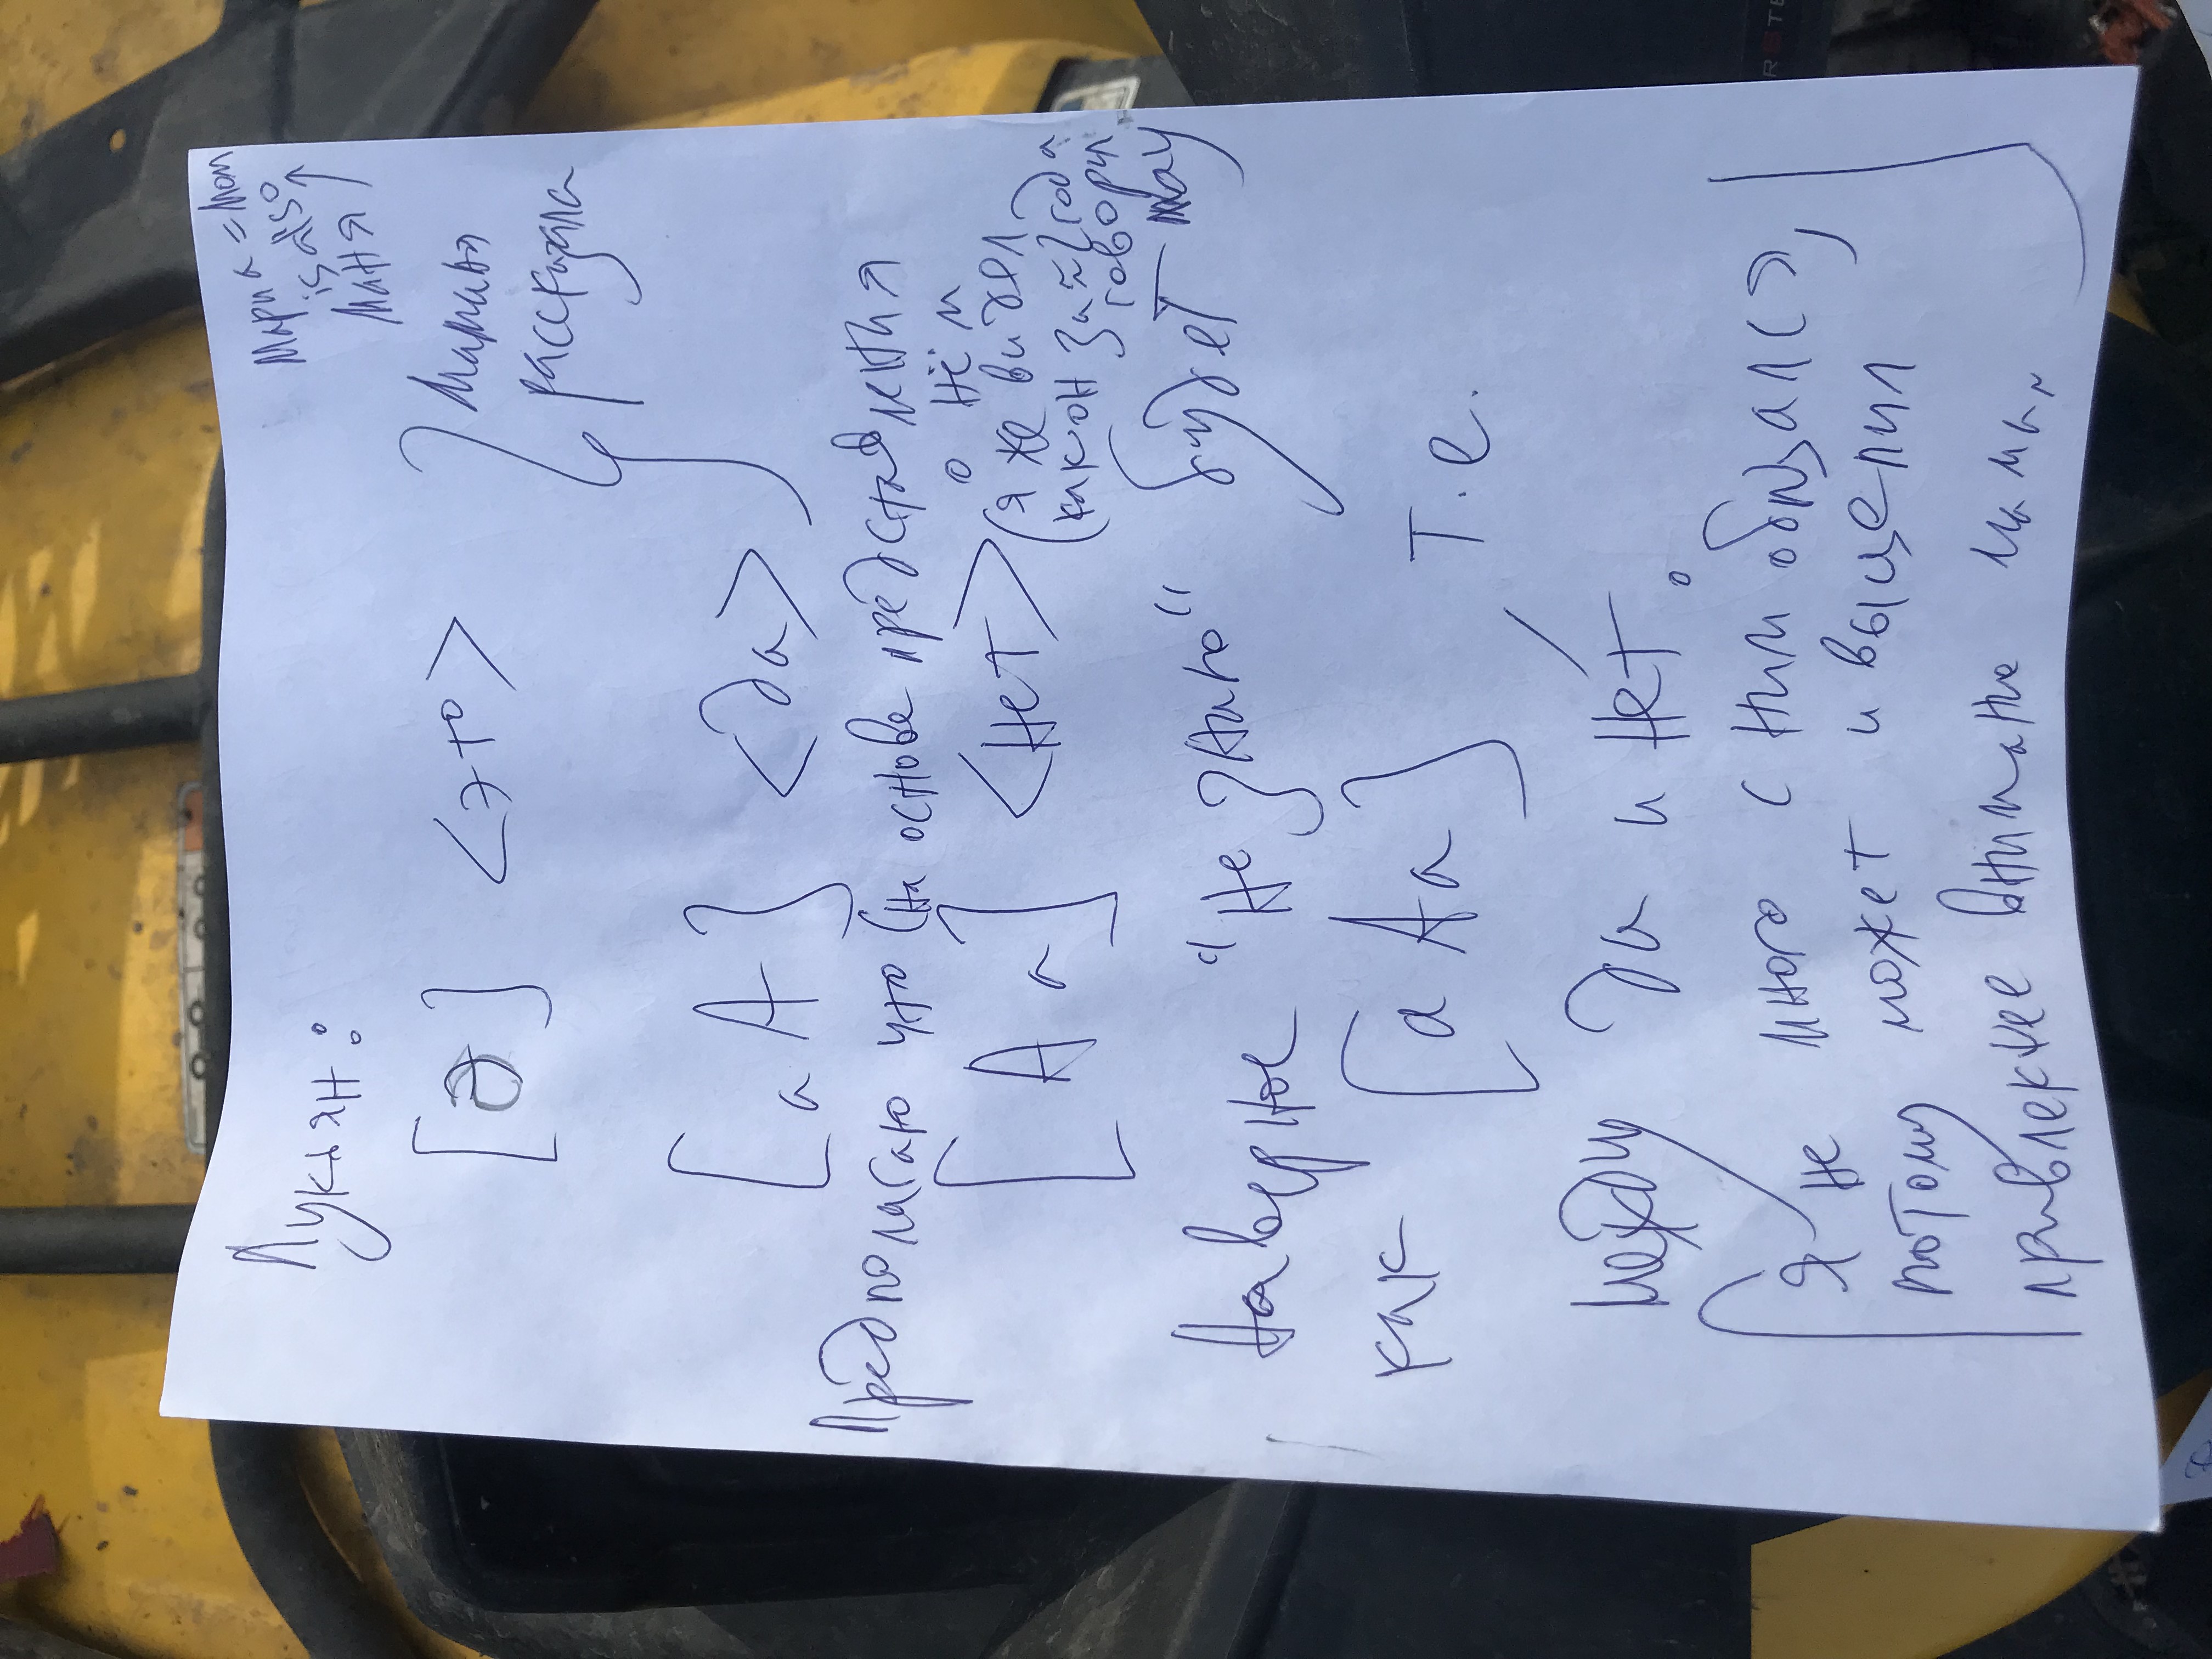 Мария = Mom
is also
Маня
Лукьян:
[Э] <это>
Маманя
рассказала
[а А] <да>
Предполагаю что (на основе представления
о нём
[А а] <нет>
(я же видел
как он за ≈2 года
говорил
Наверное "не знаю" будет
как [а А а] т.е.
между да и нет.
Я не много с ним общался,
потому может и выщепил
привлекнее внимание мама,